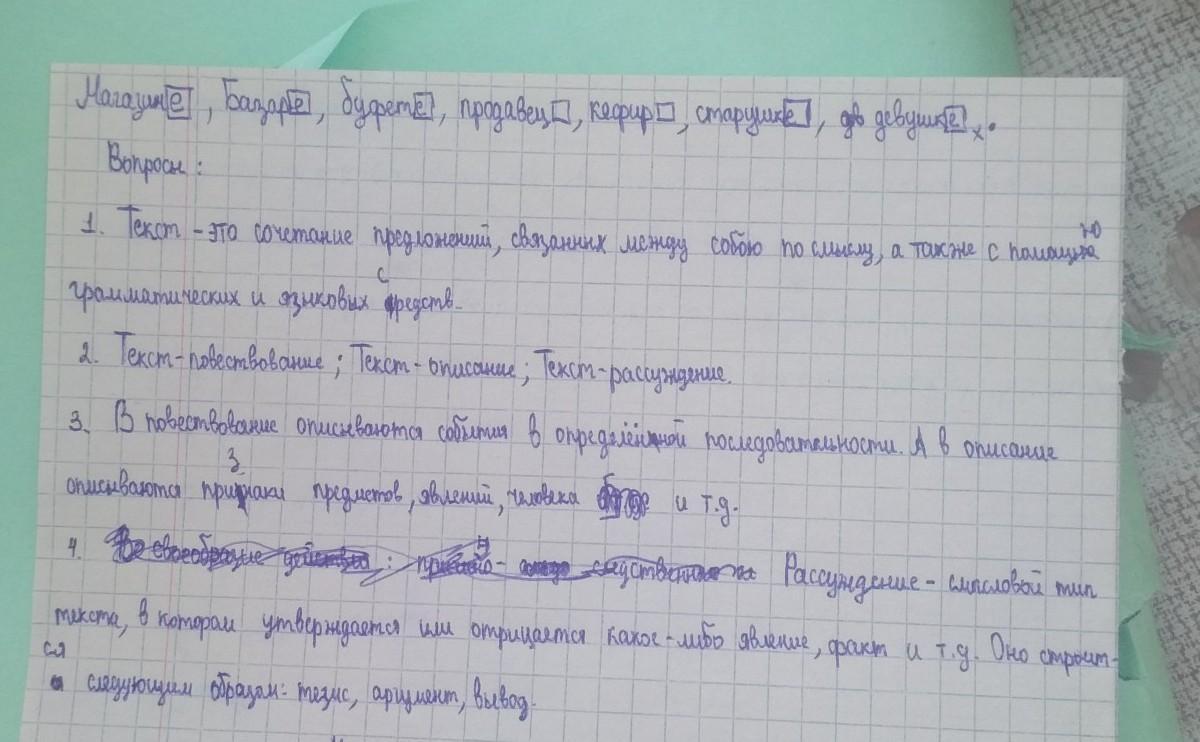 Магазине, базаре, буфете, продавец, кефир, старушке, дв девушке.
Вопросы:
1. Текст - это сочетание предложений, связанних между собою по смыслу, а также с помощью
грамматических и языковых средств.
2. Текст-повествование; Текст-описание; Текст-рассуждение.
3. В повествование описываются события в определённой последовательности. А в описание
описываются признаки предметов, явлений, человека и т.д.
4. Рассуждение - смысловой тип
текста, в котором утверждается или отрицается какое-либо явление, факт и т.д. Оно строит-
ся следующим образом: тезис, аргумент, вывод.